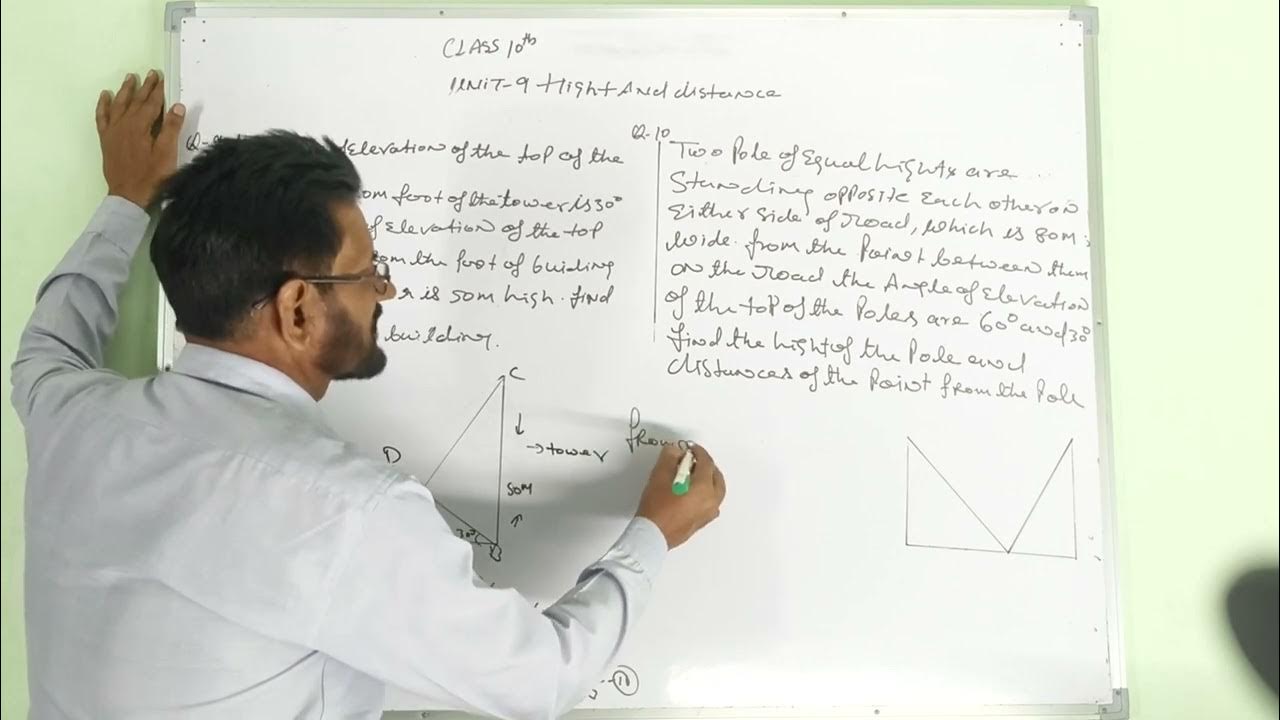 CLASS 10th
UNIT-9 Hight And distance
Elevation of the top of the
om foot of the tower is 30°
of Elevation of the top
om the foot of building
r is 50m high. find
building.
C
→ tower
D
50M
30°
B
from
10
Q-10
Two Pole of Equal hights are
Standing opposite Each other on
Either side of road, which is 80m
wide. from the Point between them
on the road the Angle of Elevation
of the top of the Poles are 60° and 30°
find the hight of the Pole and
distances of the Point from the Pole